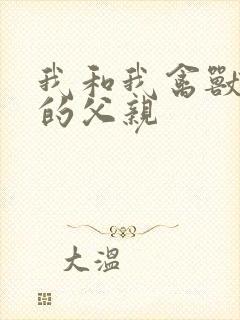 我和我禽獸
的父親
大溫